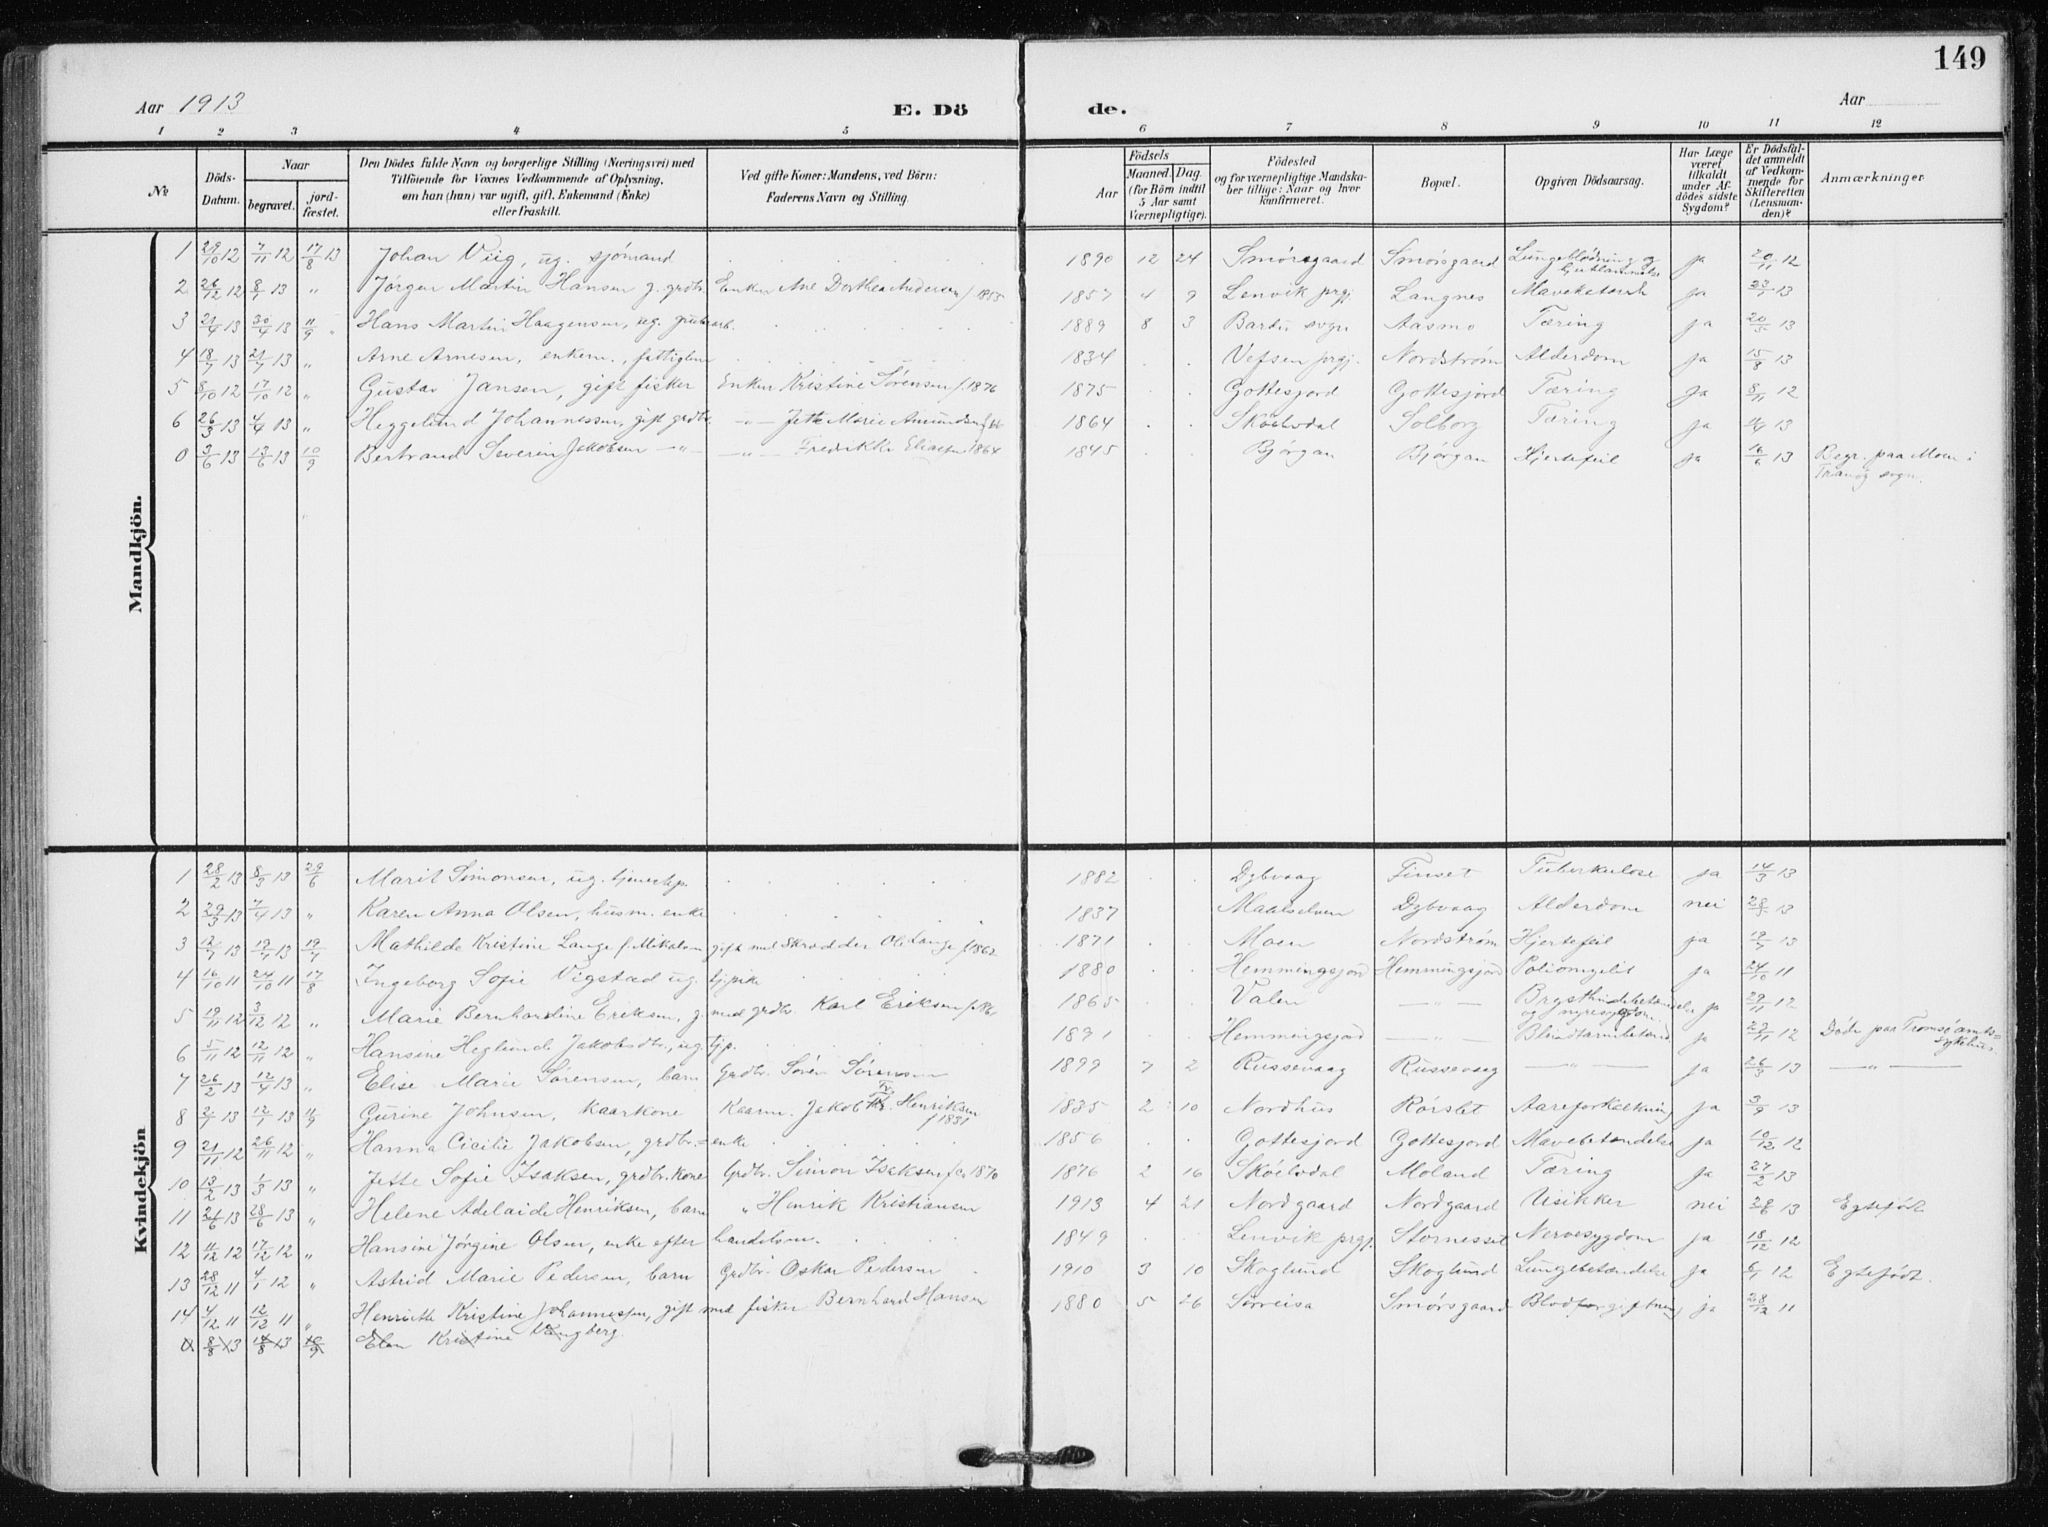 149
Aar 1913 E. Dö de. Aar
1 2 3 4 5 6 7 8 9 10 11 12
№ Döds-Datum. Naar begravet. jord-fæstet. Den Dödes fulde Navn og borgerlige Stilling (Næringsvei) med Tilföiende for Voxnes Vedkommende af Oplysning, om han (hun) var ugift, gift, Enkemand (Enke) eller fraskilt. Ved gifte Koner: Mandens, ved Börn: Faderens Navn og Stilling. Födsels Aar Maaned. Dag. (for Börn indtil 5 Aar samt Værnepligtige). Födested og for værnepligtige Mandskaber tillige: Naar og hvor konfirmeret. Bopæl. Opgiven Dödsaarsag. Har Læge været tilkaldt under Afdödes sidste Sygdom? Er Dödsfaldet anmeldt af Vedkommende for Skifteretten (Lensmanden)? Anmærkninger
Mandkjön.
1 29/10 12 7/11 12 17/8 13 Johan Viig, ug. sjómand 1890 12 24 Smórsgaard Smórsgaard Lungeblödning og ja 20/11 12
2 26/12 12 8/1 13 " Jørgen Martin Hansen g. grdbr. Enken Ane Dorthea Andersen f. 1855 1857 4 9 Lenvik prgj. Langnes Mavekatarrh ja 23/1 13
3 21/4 13 30/4 13 11/9 " Hans Martin Haagensen, ug. 1889 8 3 Bardu sogn Aasmo Tæring ja 20/5 13
4 18/7 13 21/7 13 " Arne Arnesen, enkem., fattiglem 1834 Vefsen prgj. Nordstrøm Alderdom ja 15/8 13
5 8/10 12 17/10 12 " Gustav Jansen, gift fisker Enken Kristine Sørensen f. 1876 1875 Gottesjord Gottesjord Tæring ja 8/11 12
6 26/3 13 4/4 13 " Heggelund Johannessen, gift grdbr. -"- Jette Marie Amundsen 1864 Skóelvdal Solborg Tæring ja 13
0 3/6 13 13/6 13 10/9 Bertrand Severin Jakobsen -"- -"- Fredrikke Eliasen 1864 1845 Bjórgan Bjórgan Hjertefeil ja 16/6 13 Begr. paa Moen i
Tranóy sogn.
Kvindekjön
1 28/2 13 8/3 13 29/6 Marit Simonsen, ug. tjenestep. 1882 Dybvaag Finset Tuberkulose ja 14/3 13
2 29/3 13 7/4 13 " Karen Anna Olsen, husm. enke 1837 Maalselven Dybvaag Alderdom nei 13
3 12/7 13 19/7 13 19/7 Mathilde Kristine Lange f. Mikalsen gift med Skrædder Ole Lange f. 1862 1871 Moen Nordstrøm Hjertefeil ja 19/7 13
4 16/10 11 24/10 11 17/8 Ingeborg Sofie Vigstad ug. tj.pike 1880 Hemmingsjord Hemmingsjord Poliomyelit ja 24/10 11
5 19/11 12 3/12 12 " Marie Bernhardine Eriksen, g. med grdbr. Karl Eriksen 1865 Valen -"- Brysthindebetændelse ja 29/11 12
og nyresygdom.
6 5/11 12 12/11 12 " Hansine Heglund Jakobsdtr., ug. tj.p. 1891 Hemmingsjord -"- Blindtarmbetænd. ja 29/11 12 Døde paa Tromsø amts=
sykehus.
7 26/2 13 12/4 13 " Elise Marie Sørensen, barn Grdbr. Sören Sörensen 1899 7 2 Russevaag Russevaag -"- ja 26/3 13 -"-
8 2/7 13 12/7 13 11/9 Gurine Johnsen, kaarkone Kaarm. Jakob Henriksen 1835 2 10 Nordhus Rórslet Aareforkalkning ja 3/9 13
f 1831
9 21/11 12 26/11 12 " Hanna Cicilie Jakobsen, grdbr.=enke 1856 Gottesjord Gottesjord Mavebetændelse ja 10/12 12
10 13/2 13 1/3 13 " Jette Sofie Isaksen, grdbr.kone Grdbr. Simon Isaksen 1870 1876 2 16 Skóelvdal Moland Tæring ja 27/2 13
11 21/6 13 28/6 13 " Helene Adelaide Henriksen, barn " Henrik Kristiansen 1913 4 21 Nordgaard Nordgaard Usikker nei 28/6 13 Egtefódt
12 11/12 12 17/12 12 " Hansine Jørgine Olsen, enke efter handelsm. 1849 Lenvik prgj. Stornesset Nervesygdom ja 18/12 12
13 28/12 11 4/1 12 " Astrid Marie Pedersen, barn Grdbr. Oskar Pedersen 1910 3 10 Skoglund Skoglund Lungebetændelse ja 6/1 12 Egtefódt.
14 4/12 11 12/12 11 " Henriette Kristine Johannessen, gift med fisker Bernhard Hansen 1880 5 26 Sørreisa Smórsgaard Blodforgiftning ja 28/12 11
0 8/8 13 14/8 13 10/9 Elen Kristine Kongberg.